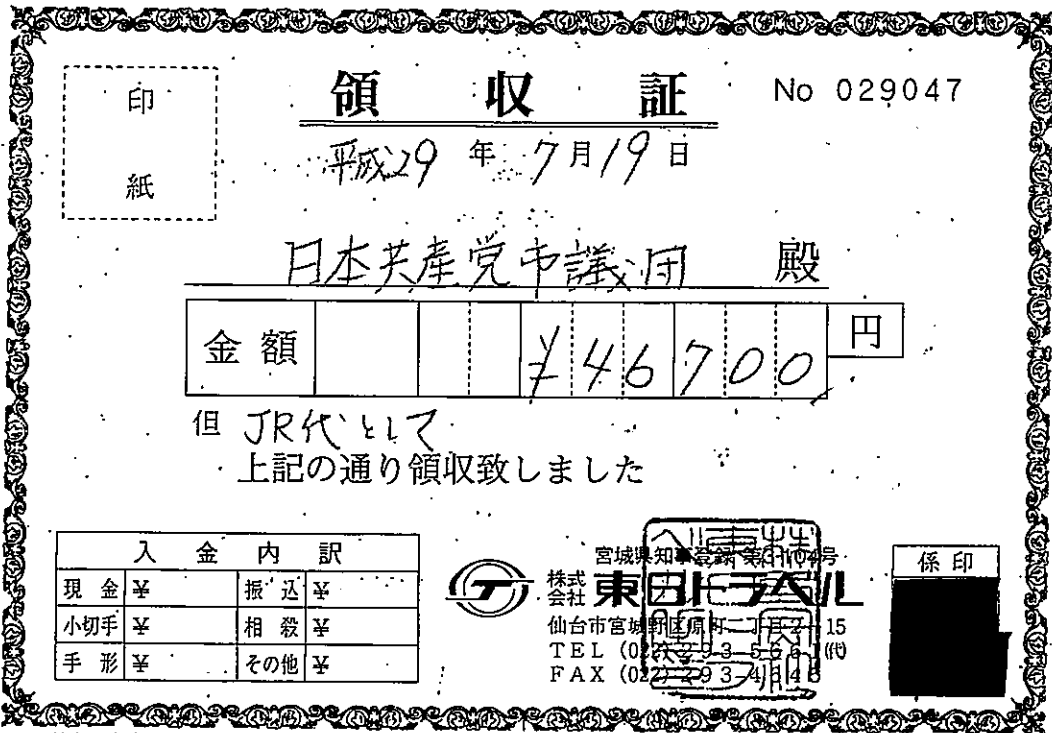 印
紙
領収証
No 029047
平成29年7月19日
日本共産党市議団 殿
金額 ¥46700 円
但 JR代として
上記の通り領収致しました
入金内訳
現金 ¥ 振込 ¥
小切手 ¥ 相殺 ¥
手形 ¥ その他 ¥
宮城県知事登録
株式会社 東日トラベル
仙台市宮城野区原町二丁目2-15
TEL (022) 293-5661 (代)
FAX (022) 293-4
係印